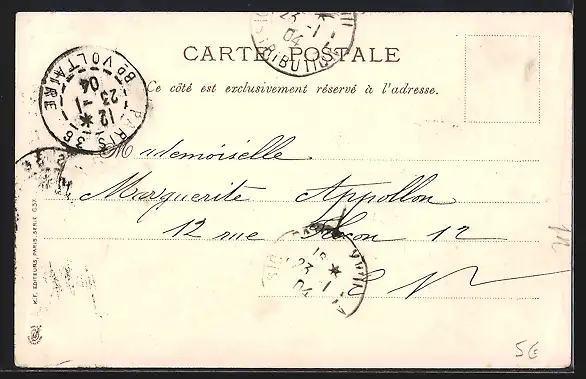 DISTRIBUTION
23 -1
04
CARTE POSTALE
Ce côté est exclusivement réservé à l'adresse.
PARIS 36 Bd VOLTAIRE
12 *
23 -1
04
Mademoiselle
Marguerite Appollon
12 rue 12
E V
PARIS
* 23 -1
04
K.F. EDITEURS, PARIS. SERIE 657
5€